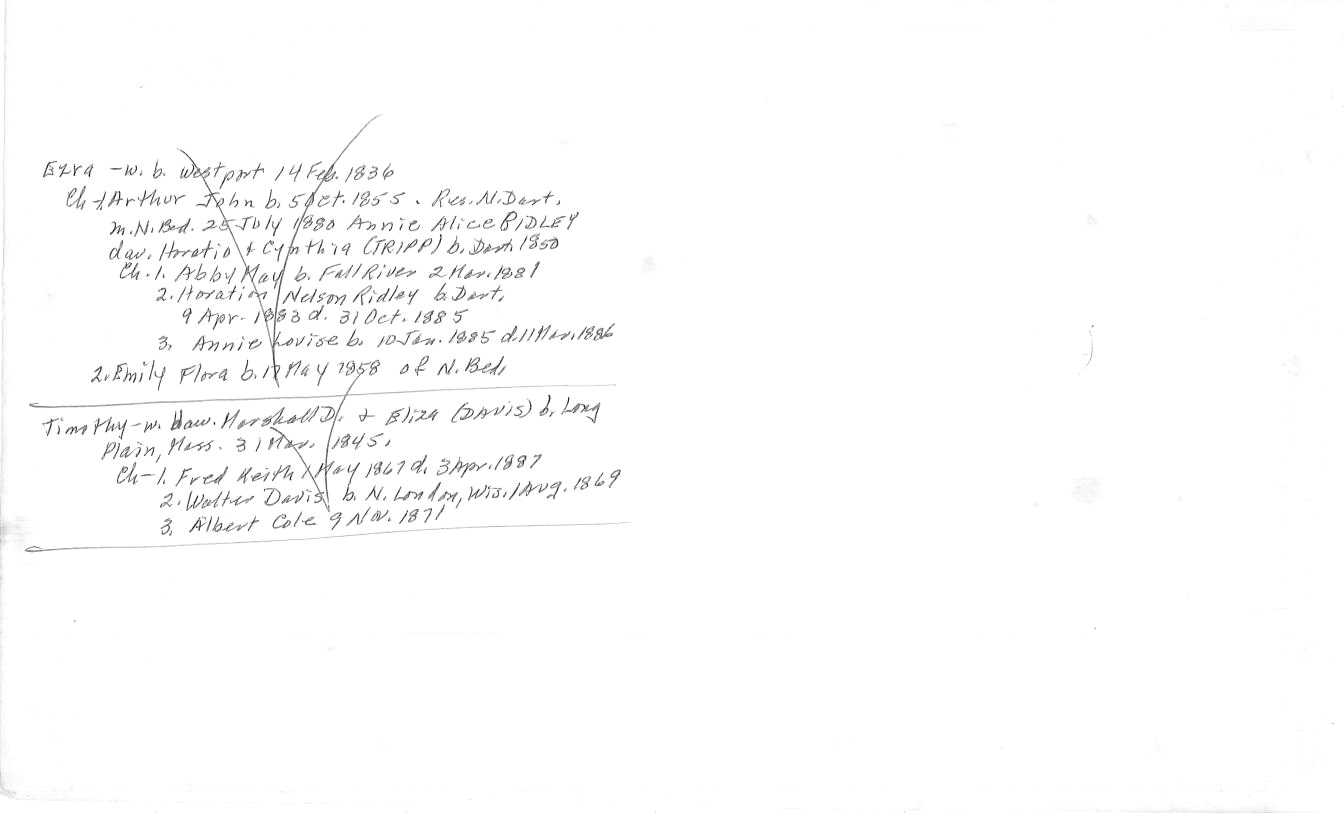 Ezra - w. b. Westport 14 Feb. 1836
Ch - 1. Arthur John b. 5 Oct. 1855. Res. N. Dart.
m. N. Bed. 25 July 1880 Annie Alice RIDLEY
dau. Horatio & Cynthia (TRIPP) b. Dart. 1850
Ch - 1. Abby May b. Fall River 2 Mar. 1881
2. Horation Nelson Ridley b. Dart.
9 Apr. 1883 d. 31 Oct. 1885
3. Annie Louise b. 10 Jan. 1885 d. 11 Mar. 1886
2. Emily Flora b. 17 May 1858 of N. Bed.
Timothy - w. dau. Marshall D. & Eliza (DAVIS) b. Long
Plain, Mass. 31 Mar. 1845.
Ch - 1. Fred Keith 1 May 1867 d. 3 Apr. 1887
2. Walter Davis b. N. London, Wis. 1 Aug. 1869
3. Albert Cole 9 Nov. 1871